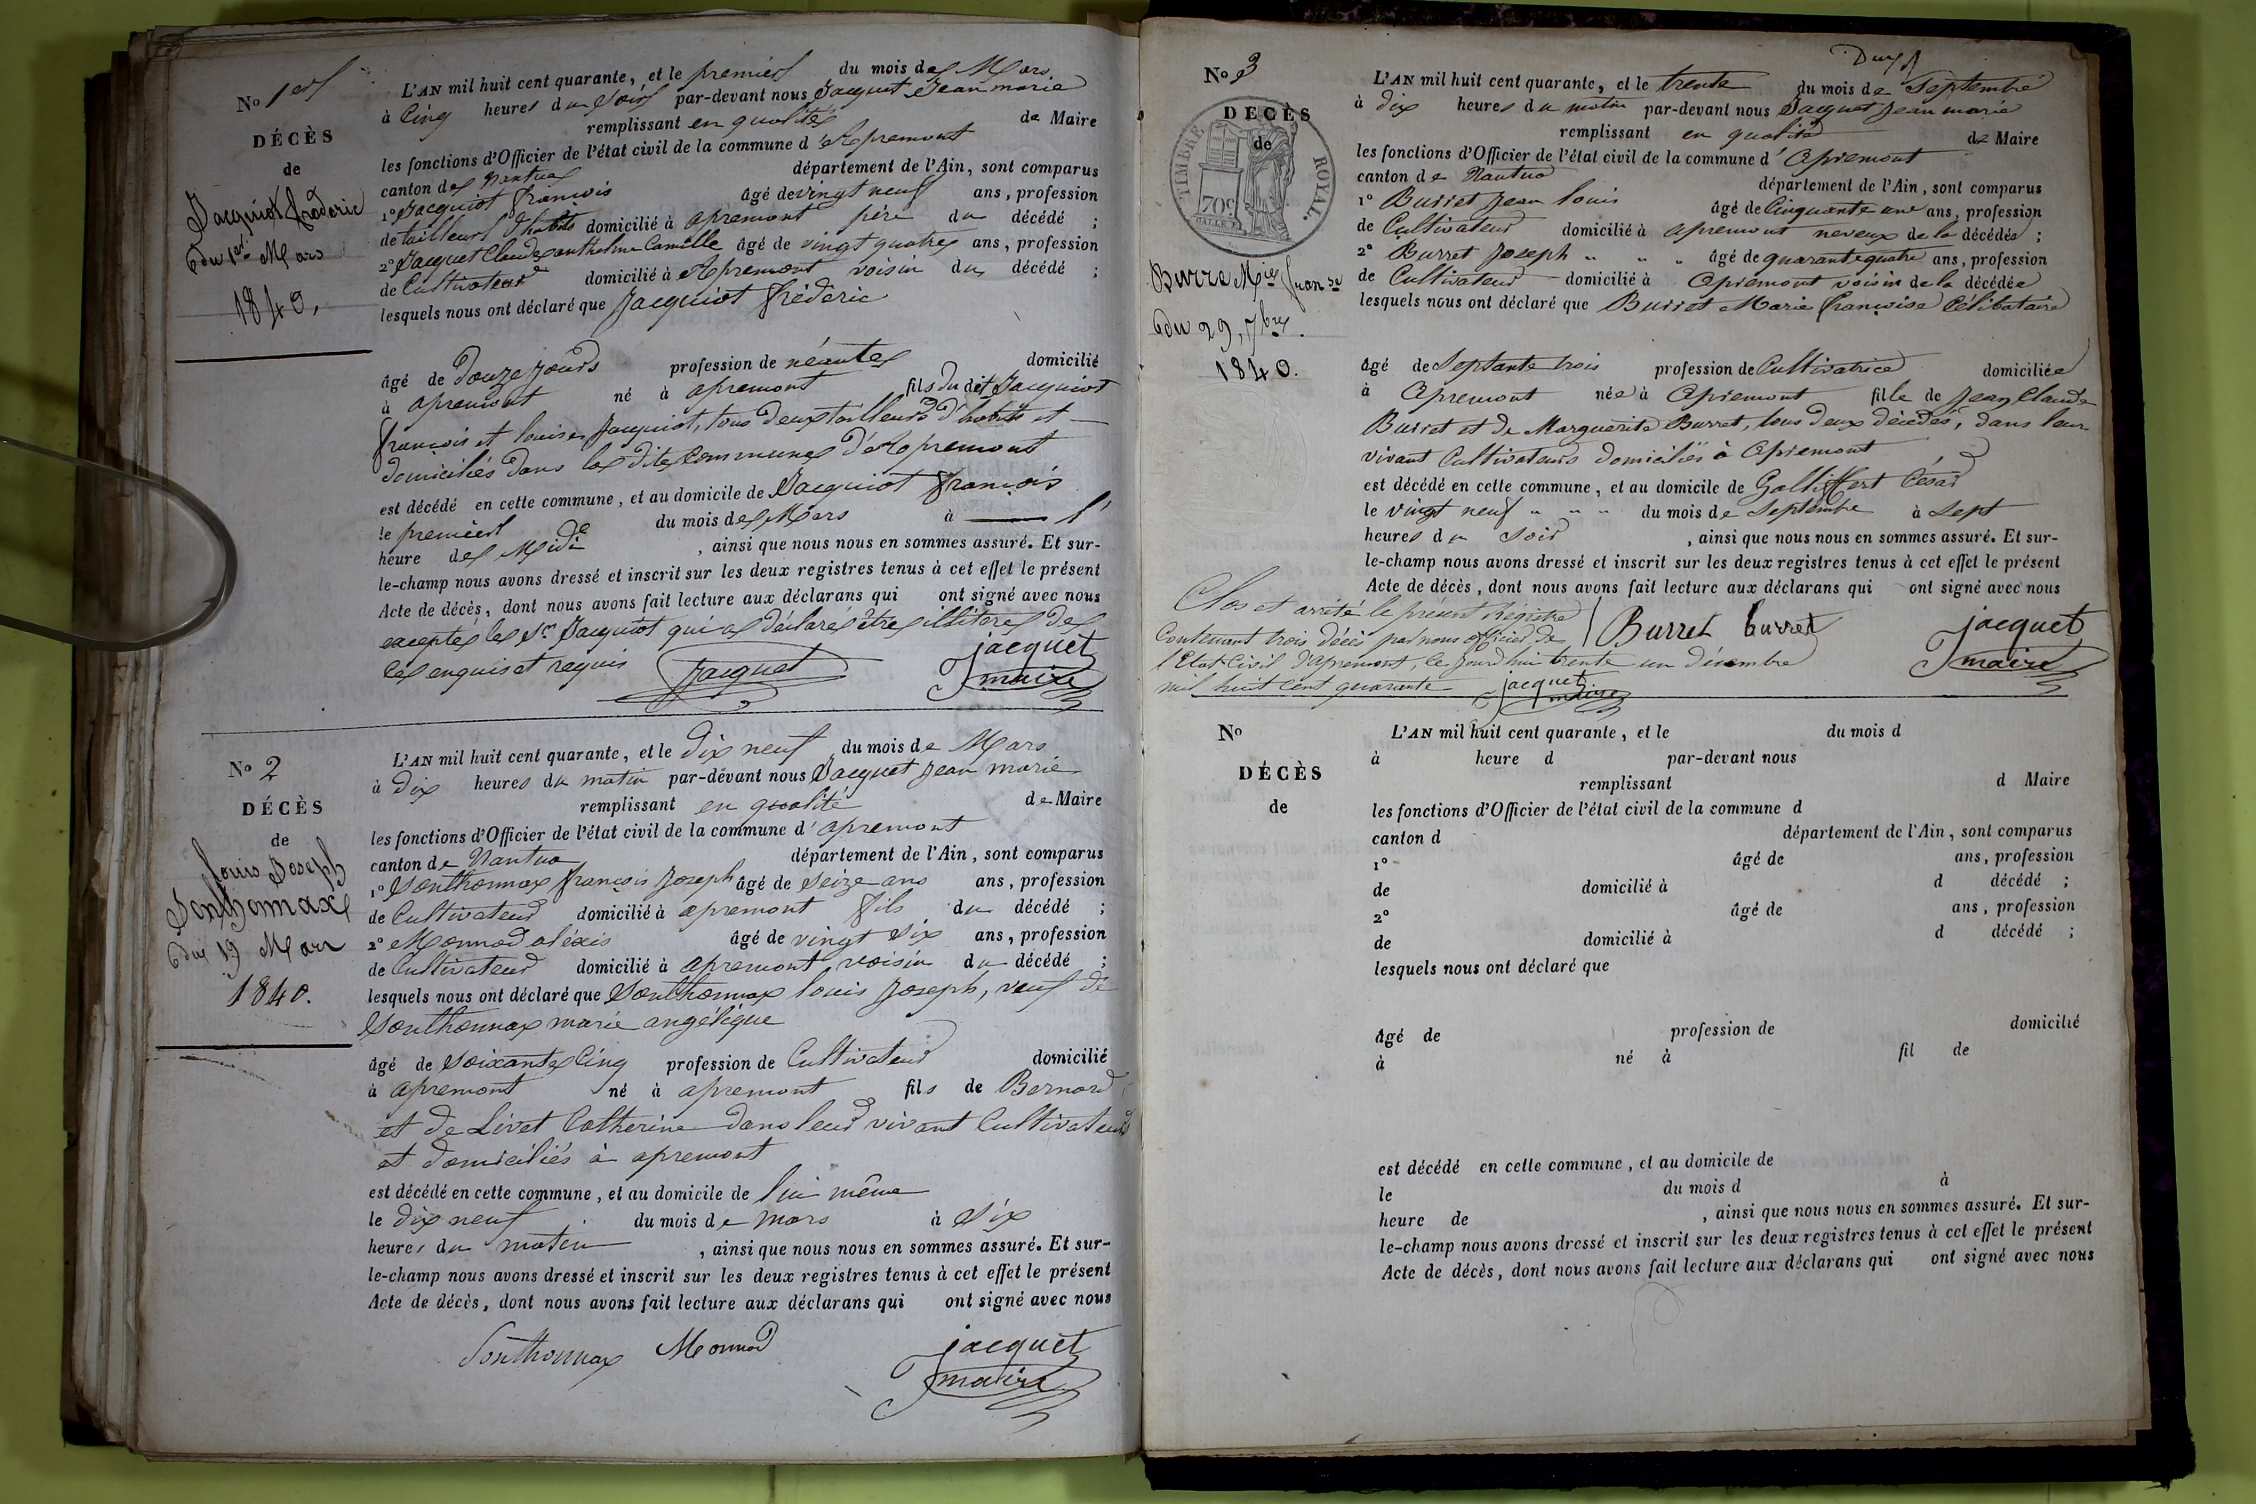 No 1er
DÉCÈS
de
Jacquiot frédéric
du 1er Mars
1840.
L'AN mil huit cent quarante, et le premier du mois de Mars
à Cinq heures du Soir par-devant nous Jacquet Jean marie
remplissant en qualité de Maire
les fonctions d'Officier de l'état civil de la commune d'Apremont
canton de Nantua département de l'Ain, sont comparus
1° Jacquiot françois âgé de vingt neuf ans, profession
de tailleur d'habits domicilié à apremont père du décédé ;
2° Jacquet Claude anthelme Camille âgé de vingt quatre ans, profession
de Cultivateur domicilié à Apremont voisin du décédé ;
lesquels nous ont déclaré que Jacquiot frédéric
âgé de douze jours profession de néante domicilié
à apremont né à apremont fils du dit Jacquiot
françois et louise Jacquiot, tous deux tailleurs d'habits et
domiciliés dans la dite Commune d'Apremont
est décédé en cette commune, et au domicile de Jacquiot françois
le premier du mois de Mars à
heure de Midi, ainsi que nous nous en sommes assuré. Et sur-
le-champ nous avons dressé et inscrit sur les deux registres tenus à cet effet le présent
Acte de décès, dont nous avons fait lecture aux déclarans qui ont signé avec nous
excepté le Sr Jacquiot qui a déclaré être illitéré de
ce enquis et requis Jacquet jacquet
maire
No 2
DÉCÈS
de
louis Joseph
Sonthonnax
du 19 Mars
1840.
L'AN mil huit cent quarante, et le dix neuf du mois de Mars
à dix heures du matin par-devant nous Jacquet Jean marie
remplissant en qualité de Maire
les fonctions d'Officier de l'état civil de la commune d'apremont
canton de Nantua département de l'Ain, sont comparus
1° Sonthonnax françois Joseph âgé de seize ans ans, profession
de Cultivateur domicilié à apremont fils du décédé ;
2° Monnod aléxis âgé de vingt six ans, profession
de Cultivateur domicilié à apremont voisin du décédé ;
lesquels nous ont déclaré que Sonthonnax louis Joseph, veuf de
Sonthonnax marie angélique
âgé de soixante Cinq profession de Cultivateur domicilié
à apremont né à apremont fils de Bernard
et de Livet Catherine dans leur vivant Cultivateurs
et domiciliés à apremont
est décédé en cette commune, et au domicile de lui même
le dix neuf du mois de mars à Six
heures du matin, ainsi que nous nous en sommes assuré. Et sur-
le-champ nous avons dressé et inscrit sur les deux registres tenus à cet effet le présent
Acte de décès, dont nous avons fait lecture aux déclarans qui ont signé avec nous
Sonthonnax Monnod jacquet
maire
No 3
DÉCÈS
de
TIMBRE ROYAL.
70c
Burret Mie franse
du 29, 7bre
1840.
L'AN mil huit cent quarante, et le trente du mois de Septembre
à dix heures du matin par-devant nous Jacquet Jean marie
remplissant en qualité de Maire
les fonctions d'Officier de l'état civil de la commune d'Apremont
canton de Nantua département de l'Ain, sont comparus
1° Burret Jean louis âgé de Cinquante une ans, profession
de Cultivateur domicilié à apremont neveux de la décédée ;
2° Burret Joseph " " " âgé de quarante quatre ans, profession
de Cultivateur domicilié à Apremont voisin de la décédée
lesquels nous ont déclaré que Burret Marie françoise Célibataire
âgé de Septante trois profession de Cultivatrice domiciliée
à Apremont née à Apremont fille de Jean Claude
Burret et de Marguerite Burret, tous deux décédés, dans leur
vivant Cultivateurs domiciliés à Apremont
est décédé en cette commune, et au domicile de Galliffert César
le vingt neuf " " " du mois de Septembre à Sept
heures du Soir, ainsi que nous nous en sommes assuré. Et sur-
le-champ nous avons dressé et inscrit sur les deux registres tenus à cet effet le présent
Acte de décès, dont nous avons fait lecture aux déclarans qui ont signé avec nous
Burret burret jacquet
maire
Clos et arrêté le présent Régistre
Contenant trois décès par nous officier de
l'Etat Civil d'apremont, ce jourd'hui trente un décembre
mil huit cent quarante jacquet
maire
No
DÉCÈS
de
L'AN mil huit cent quarante, et le du mois d
à heure d par-devant nous
remplissant d Maire
les fonctions d'Officier de l'état civil de la commune d
canton d département de l'Ain, sont comparus
1° âgé de ans, profession
de domicilié à d décédé ;
2° âgé de ans, profession
de domicilié à d décédé ;
lesquels nous ont déclaré que
âgé de profession de domicilié
à né à fil de
est décédé en cette commune, et au domicile de
le du mois d à
heure de , ainsi que nous nous en sommes assuré. Et sur-
le-champ nous avons dressé et inscrit sur les deux registres tenus à cet effet le présent
Acte de décès, dont nous avons fait lecture aux déclarans qui ont signé avec nous